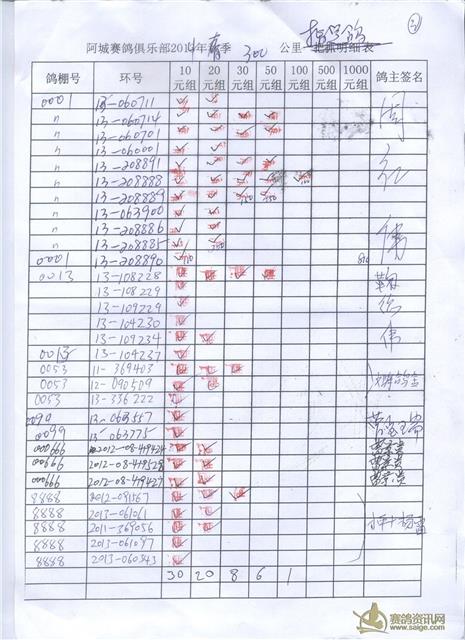 3
指定鸽
阿城赛鸽俱乐部201 年春季 300 公里 明细表
鸽棚号 环号 10元组 20元组 30元组 50元组 100元组 500元组 1000元组 鸽主签名
0001 13-060711
〃 13-060714
〃 13-060701
〃 13-060001
〃 13-208891
〃 13-208888
〃 13-208889
〃 13-063900
〃 13-208886
〃 13-208885
0001 13-208890
0013 13-108228
13-108229
13-109229
13-104230
13-109234
0013 13-104237
0053 11-369403
0053 12-090509
0053 13-336222
0099 13-063557
0099 13-063775
000666 2012-08-419424
000666 2012-08-419528
000666 2012-08-419427
8888 2012-091567
8888 2013-061061
8888 2011-369056
8888 2013-061097
8888 2013-060343
30 20 8 6 1
周
红
伟
赛鸽资讯网
www.saige.com